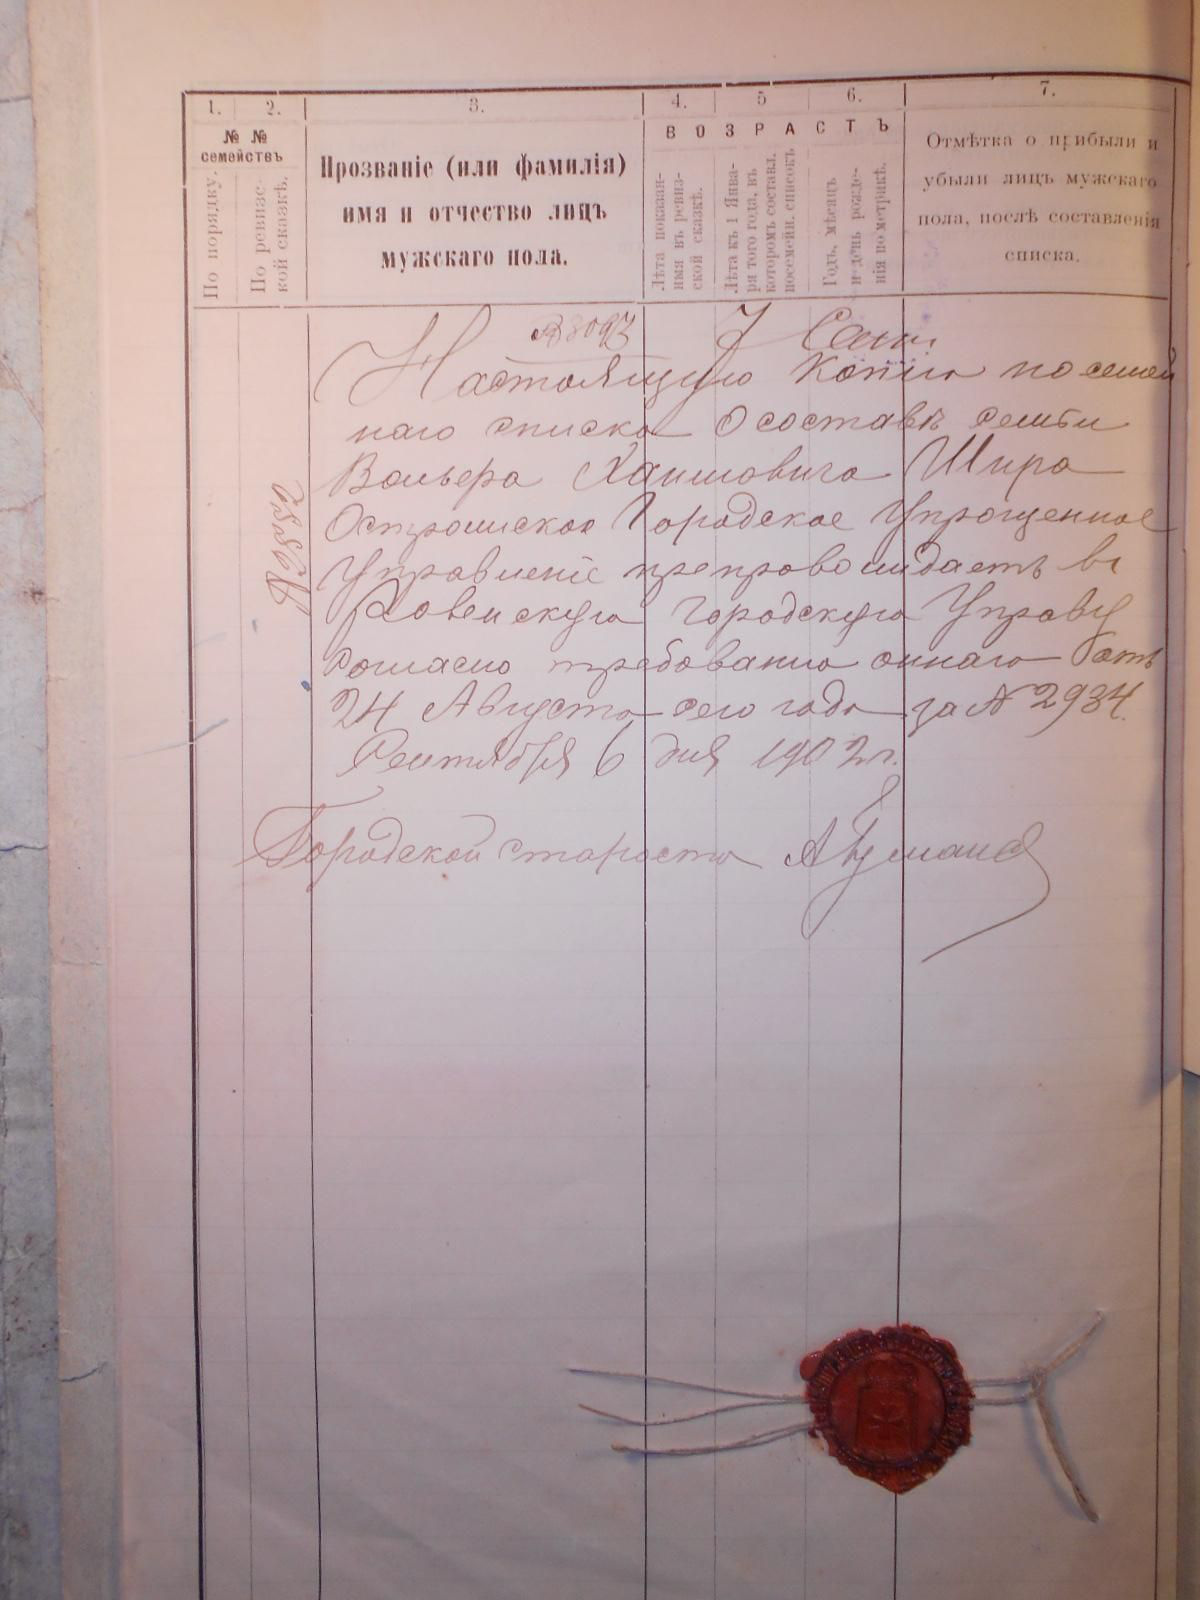 1. 2. 3. 4. 5 6. 7.
№ №
семействъ
По порядку.
По ревизс-
кой сказкѣ.
Прозваніе (или фамилія)
имя и отчество лицъ
мужскаго пола.
ВОЗРАСТЪ
Лѣта показан-
ныя въ ревиз-
ской сказкѣ.
Лѣта къ 1 Янва-
ря того года, въ
которомъ составл.
посемейн. списокъ
Годъ, мѣсяцъ
и день рожде-
нія по метрикѣ.
Отмѣтка о прибыли и
убыли лицъ мужскаго
пола, послѣ составленія
списка.
7 Сент.
Настоящую копію посемей
наго списка о составѣ семьи
Вольфа Хаимовича Шира
Острожское Городское Упрощенное
Управленіе препровождаетъ въ
Ровенскую Городскую Управу
согласно требованію оннаго отъ
24 Августа сего года за № 2934.
Сентября 6 дня 1902 г.
Городской староста
№ 3552